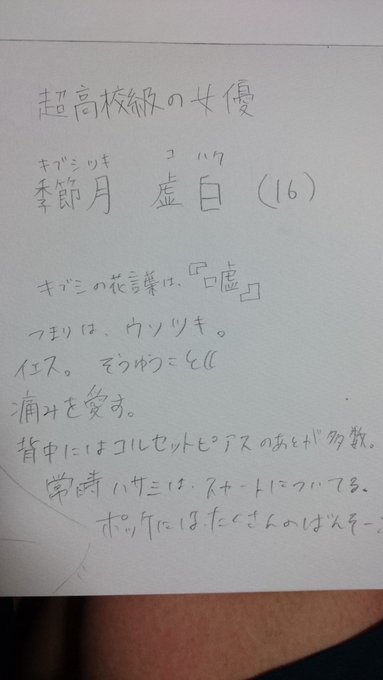 超高校級の女優
キブシツキ コハク
季節月 虚白 (16)
キブシの花言葉は、『嘘』
つまりは、ウソツキ。
イエス。そうゆうこと((
痛みを愛す。
背中にはコルセットピアスのあとが多数。
常時ハサミは、スカートについてる。
ポッケには、たくさんのばんそー